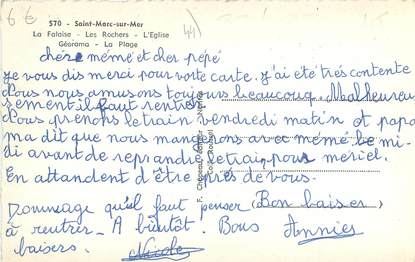 6 €
44)
570 - Saint-Marc-sur-Mer
La Falaise - Les Rochers - L'Eglise
Géorama - La Plage
chère mémé et cher pépé
je vous dis merci pour votre carte. j'ai été très contente
Nous nous amusons toujours beaucoup. Malheureu
sement il faut rentrer.
Nous prenons le train vendredi matin et papa
m'a dit que nous mangerons avec mémé le mi
di avant de reprendre le train pour meriel.
En attendent d'être près de vous.
Dommage qu'il faut penser (Bon baiser)
à rentrer - A bientôt. Bons Annies
baisers. Nicole
F. Chapeau, Editeur - Nantes